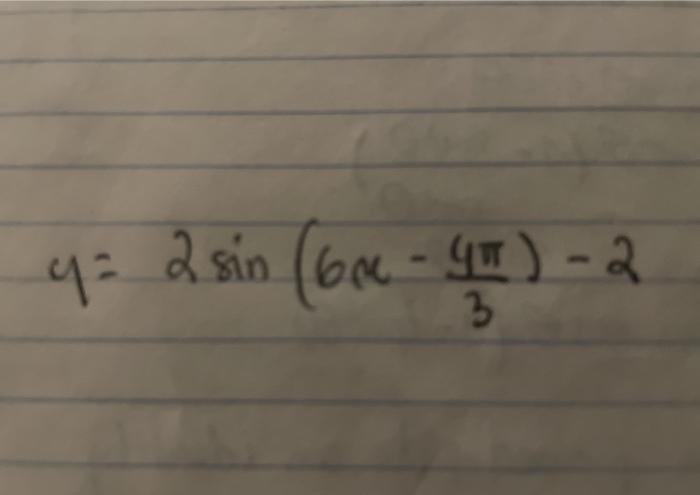 y = 2 sin (6x - 4π/3) - 2